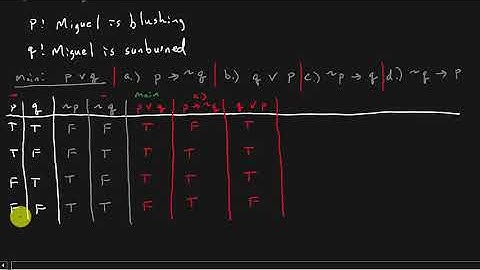 p: Miguel is blushing
q: Miguel is sunburned
main: p ∨ q | a.) p → ~q | b.) q ∨ p | c.) ~p → q | d.) ~q → p
main a.)
p q ~p ~q p ∨ q p → ~q q ∨ p
T T F F T F T
T F F T T T T
F T T F T T T
F F T T F T F